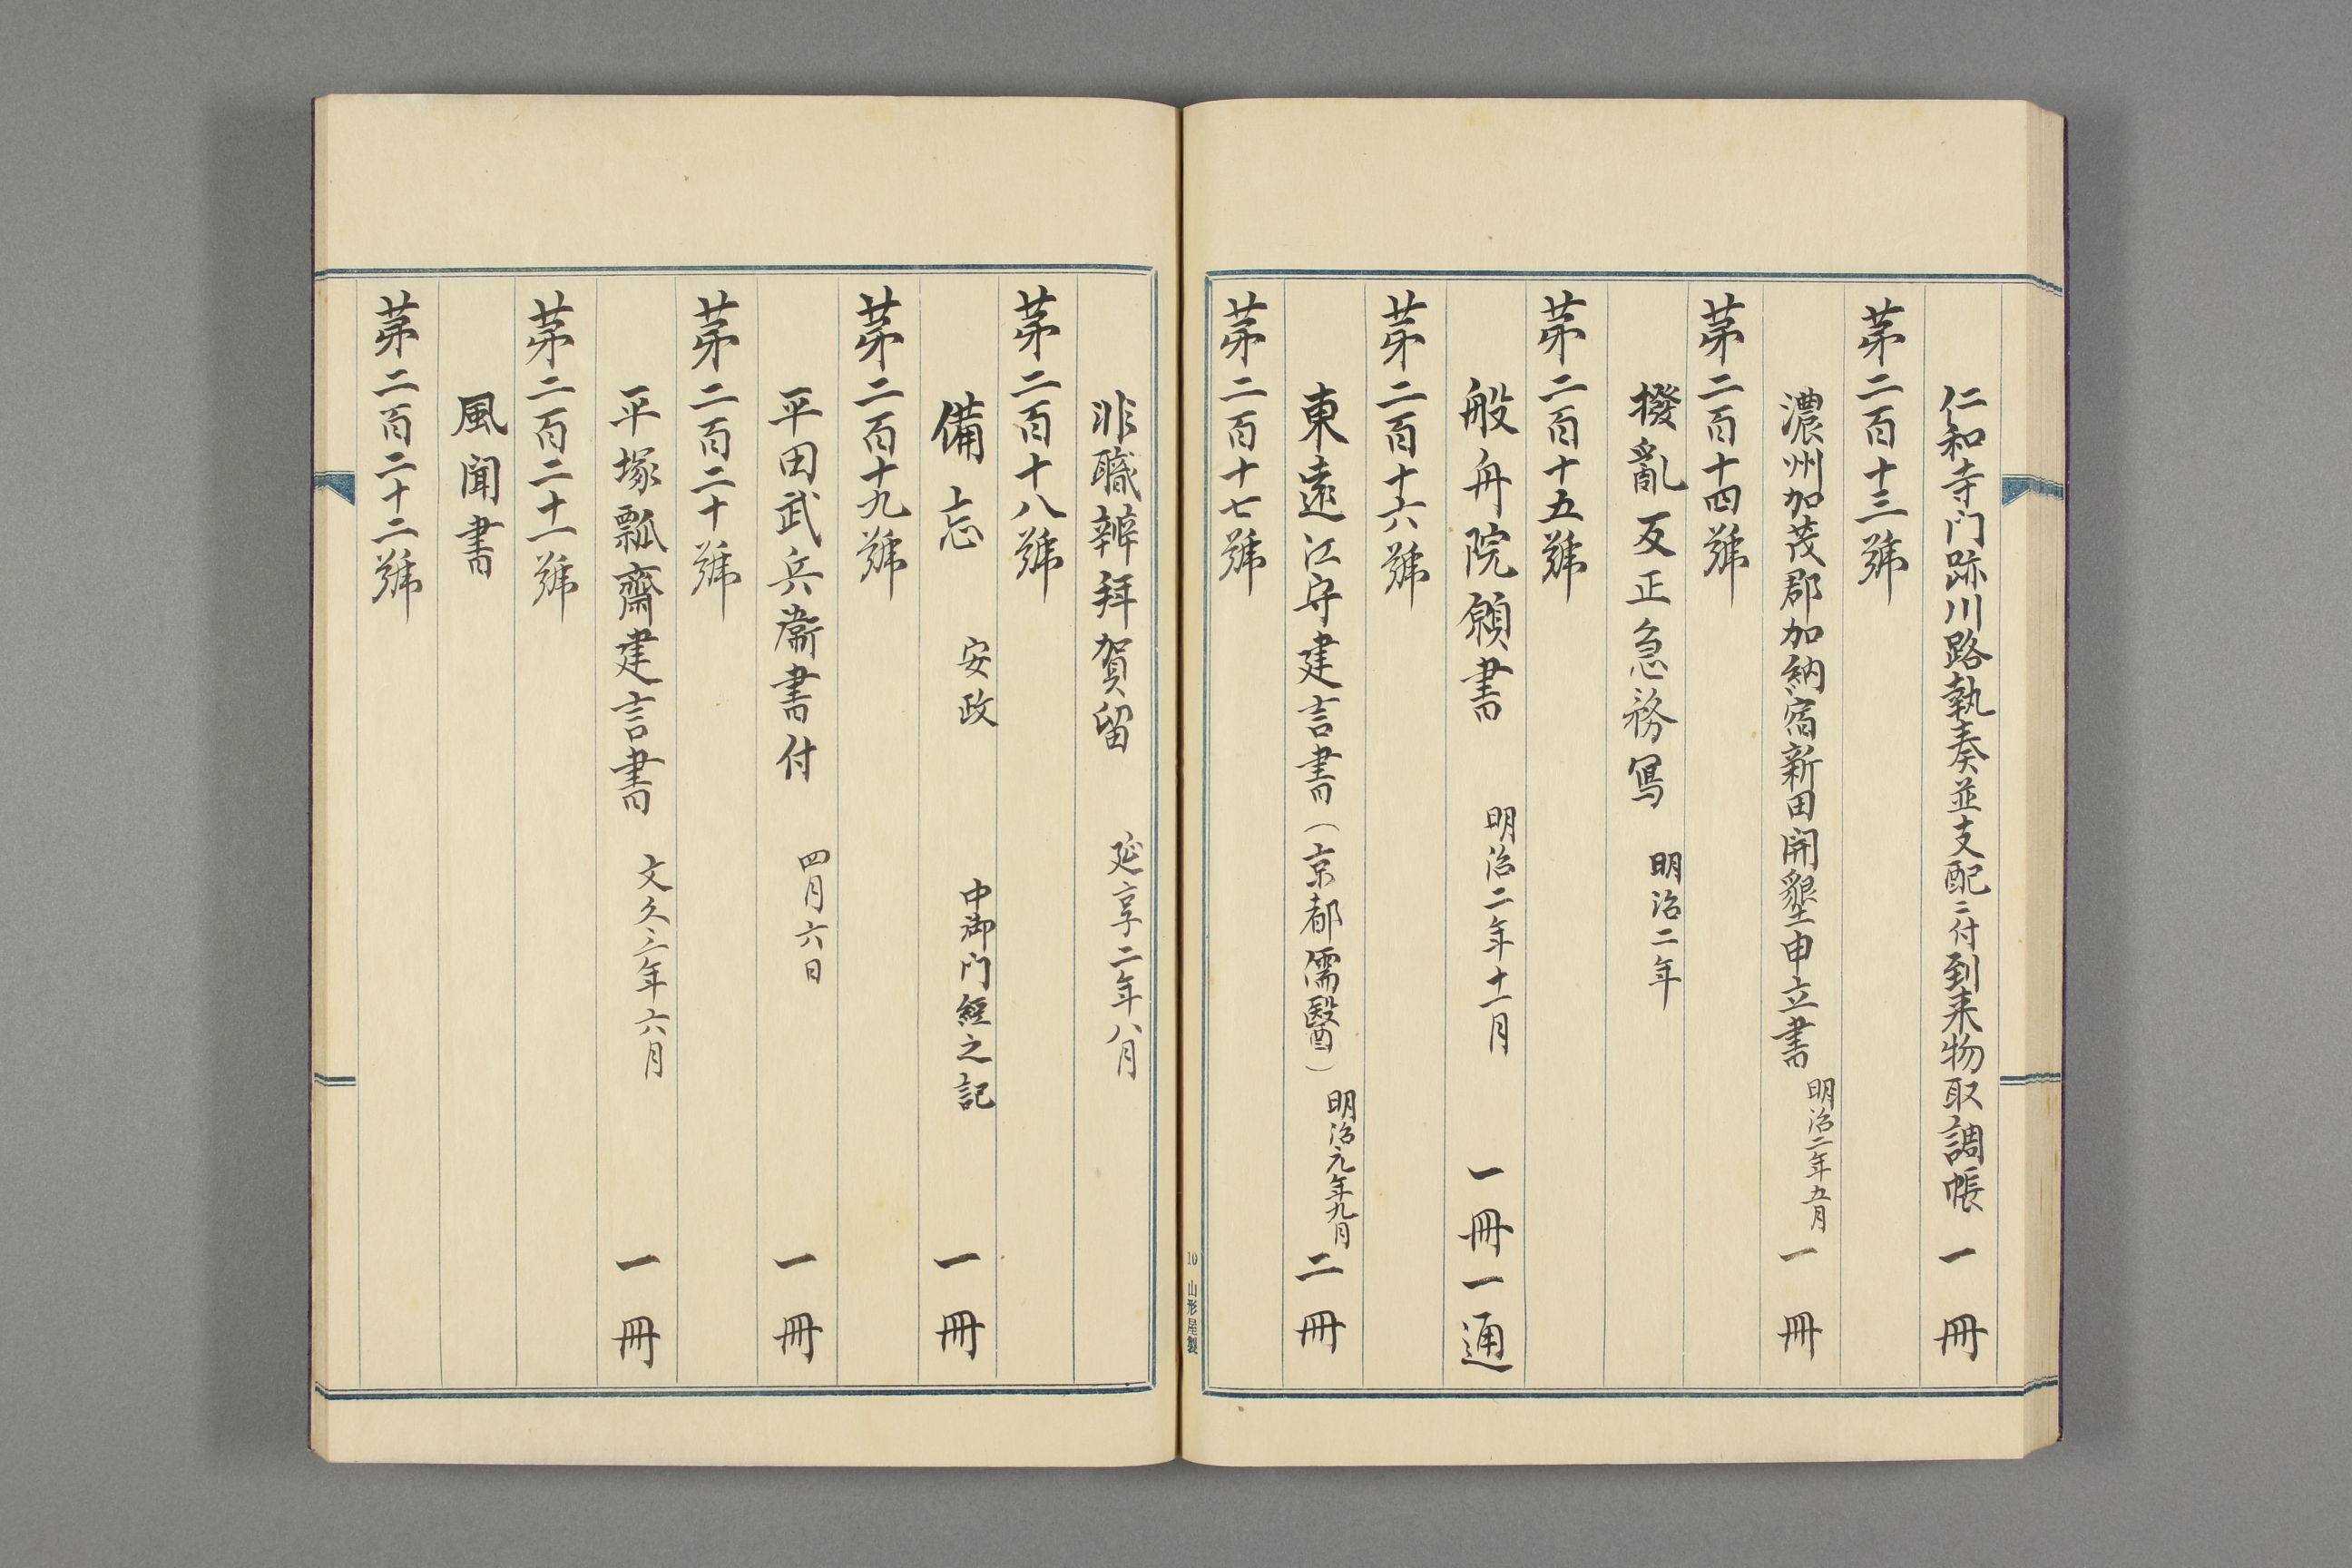 仁和寺门跡川路執奏並支配ニ付到来物取調帳 一冊
苐二百十三號
濃州加茂郡加納宿新田開墾申立書 明治二年五月 一冊
苐二百十四號
撥亂反正急務冩 明治二年
苐二百十五號
般舟院願書 明治二年十一月 一冊一通
苐二百十六號
東遠江守建言書（京都儒醫） 明治元年九月 二冊
苐二百十七號
10 山形屋製
非職辧拜賀留 延享二年八月
苐二百十八號
備忘 安政 中御门經之記 一冊
苐二百十九號
平田武兵衞書付 四月六日 一冊
苐二百二十號
平塚瓢齋建言書 文久三年六月 一冊
苐二百二十一號
風聞書
苐二百二十二號